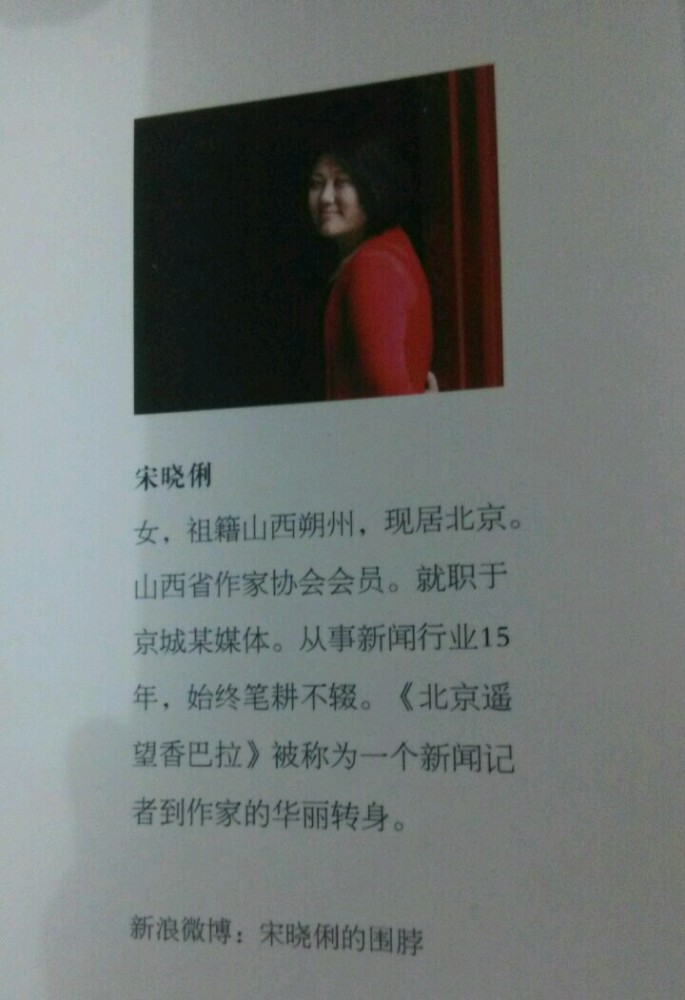 宋晓俐
女，祖籍山西朔州，现居北京。
山西省作家协会会员。就职于
京城某媒体。从事新闻行业15
年，始终笔耕不辍。《北京遥
望香巴拉》被称为一个新闻记
者到作家的华丽转身。
新浪微博：宋晓俐的围脖